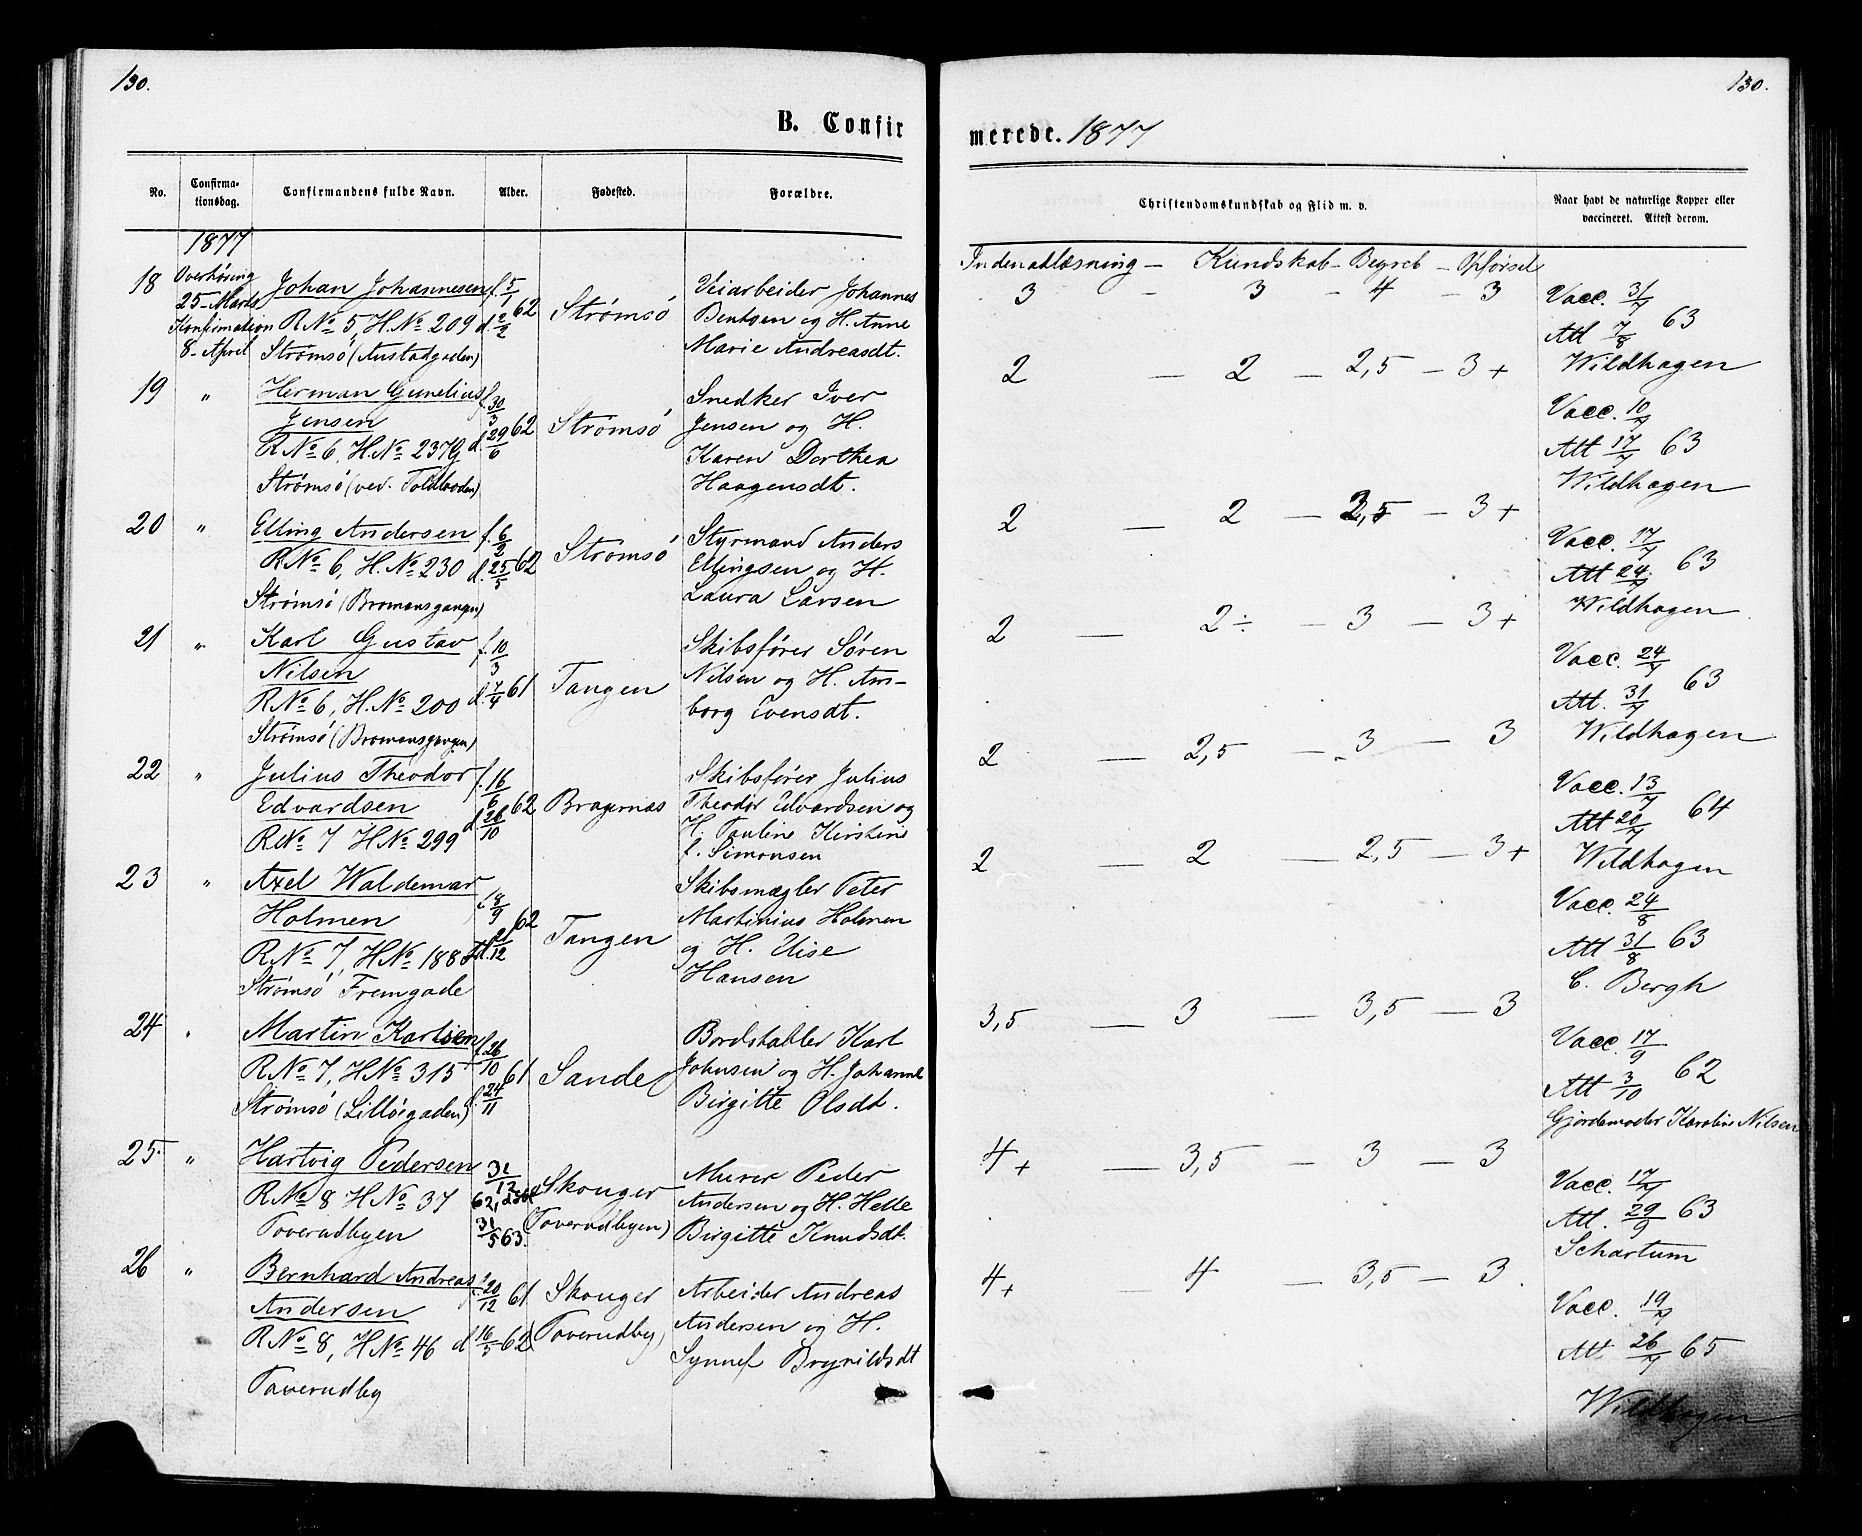 130.
B. Confir
No.
Confirma-
tionsdag.
Confirmandens fulde Navn.
Alder.
Fødested.
Forældre.
1877
18
Overhøring
25 Marts
Konfirmation
8 April
Johan Johannesen
R№ 5, H.№ 209
Strømsø (Austadgaden)
f. 5/1 62
d. 2/2
Strømsø
Veiarbeider Johannes
Bentsen og H. Anne
Marie Andreasdt.
19 "
Herman Gunelius
Jensen
R№ 6, H.№ 237G
Strømsø (ved Toldboden)
f. 30/3 62
d. 29/6
Strømsø
Snedker Iver
Jensen og H.
Karen Dorthea
Haagensdt.
20 "
Elling Andersen
R№ 6, H.№ 230
Strømsø (Bromansgangen)
f. 6/2 62
d. 25/5
Strømsø
Styrmand Anders
Ellingsen og H.
Laura Larsen
21 "
Karl Gustav
Nilsen
R№ 6, H.№ 200
Strømsø (Bromansgangen)
f. 10/3 61
d. 7/4
Tangen
Skibsfører Søren
Nilsen og H. An-
borg Evensdt.
22 "
Julius Theodor
Edvardsen
R№ 7 H№ 299
f. 16/6 62
d. 26/10
Bragernæs
Skibsfører Julius
Theodor Edvardsen og
H. Pauline Kirstine
f. Simonsen
23 "
Axel Waldemar
Holmen
R№ 7, H№ 188
Strømsø Fremgade
f. 8/9 62
d. 21/12
Tangen
Skibsmægler Peter
Martinius Holmen
og H. Elise
Hansen
24 "
Martin Karlsen
R№ 7, H№ 315
Strømsø (Lilløigaden)
f. 26/10 61
d. 24/11
Sande
Bordstabler Karl
Johnsen og H. Johanne
Birgitte Olsdt.
25. "
Hartvig Pedersen
R№ 8 H№ 37
Toverudbyen
31/12
62,
31/5 63.
Skouger
(Toverudbyen)
Murer Peder
Andersen og H. Helle
Birgitte Knudsdt.
26 "
Bernhard Andreas
Andersen
R№ 8, H№ 46
Toverudby
f. 20/12 61
d. 16/5 62
Skouger
(Toverudby)
Arbeider Andreas
Andersen og H.
Synnef Brynildsdt
130.
merede. 1877
Christendomskundskab og Flid m. v.
Naar havt de naturlige Kopper eller
vaccineret. Attest derom.
Indenadlæsning — Kundskab — Begreb — Opførsel
3 — 3 — 4 — 3
Vacc. 31/7
Att 7/8 63
Wildhagen
2 — 2 — 2,5 — 3+
Vacc. 10/7
Att 17/7 63
Wildhagen
2 — 2 — 2,5 — 3+
Vacc. 17/7
Att 24/7 63
Wildhagen
2 — 2÷ — 3 — 3+
Vacc. 24/7
Att. 31/7 63
Wildhagen
2 — 2,5 — 3 — 3
Vacc. 13/7
Att 20/7 64
Wildhagen
2 — 2 — 2,5 — 3+
Vacc. 24/8
Att 31/8 63
C. Bergh
3,5 — 3 — 3,5 — 3
Vacc. 17/9
Att 3/10 62
Gjordemoder Karoline Nilsen
4+ — 3,5 — 3 — 3
Vacc. 17/9
Att. 29/9 63
Schartum
4+ — 4 — 3,5 — 3
Vacc. 19/7
Att. 26/7 65
Wildhagen